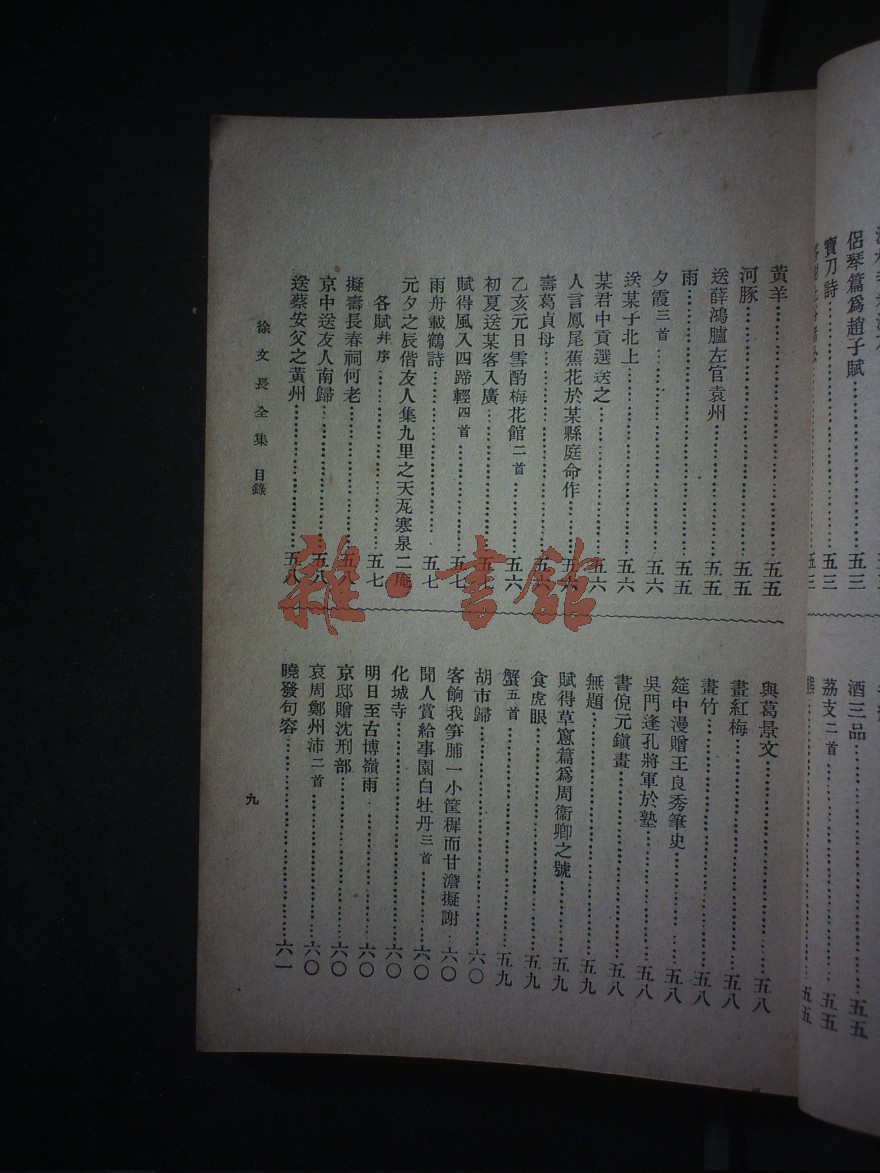 侶琴篇爲趙子賦⋯⋯五三
寶刀詩⋯⋯五三
酒三品⋯⋯五五
荔支二首⋯⋯五五
熊⋯⋯五五
黃羊⋯⋯五五
河豚⋯⋯五五
送薛鴻臚左官袁州⋯⋯五五
雨⋯⋯五五
夕霞三首⋯⋯五六
送某子北上⋯⋯五六
某君中貢選送之⋯⋯五六
人言鳳尾蕉花於某縣庭命作⋯⋯五六
壽葛貞母⋯⋯五六
乙亥元日雪酌梅花館二首⋯⋯五六
初夏送某客入廣⋯⋯五七
賦得風入四蹄輕四首⋯⋯五七
雨舟載鶴詩⋯⋯五七
元夕之辰偕友人集九里之天瓦寒泉二庵
各賦幷序⋯⋯五七
擬壽長春祠何老⋯⋯五八
京中送友人南歸⋯⋯五八
送蔡安父之黃州⋯⋯五八
與葛景文⋯⋯五八
畫紅梅⋯⋯五八
畫竹⋯⋯五八
筵中漫贈王良秀筆史⋯⋯五八
吳門逢孔將軍於塾⋯⋯五八
書倪元鎭畫⋯⋯五八
無題⋯⋯五九
賦得草窻篇爲周衞卿之號⋯⋯五九
食虎眼⋯⋯五九
蟹五首⋯⋯五九
胡市歸⋯⋯六〇
客餉我筍脯一小筐穉而甘澹擬謝⋯⋯六〇
聞人賞給事園白牡丹三首⋯⋯六〇
化城寺⋯⋯六〇
明日至古博嶺雨⋯⋯六〇
京邸贈沈刑部⋯⋯六〇
哀周鄭州沛二首⋯⋯六〇
曉發句容⋯⋯六一
徐文長全集 目錄
九
雜·書館